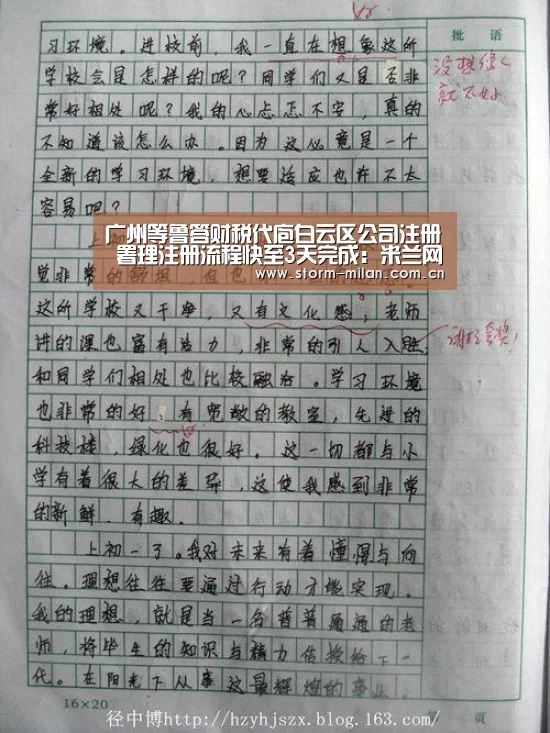 批语
习环境。进校前，我一直在想象这所
学校会是怎样的呢？同学们又是否非
常好相处呢？我的心忐忑不安，真的
不知道该怎么办。因为这必竟是一个
全新的学习环境，想要适应也许不太
容易吧？
没想像
就不如
上初
广州等鲁管财税代庖白云区公司注册
管理注册流程快至3天完成：米兰网
www.storm-milan.com.cn
觉非常的舒坦，但也
这所学校又干净，又有文化感；老师
讲的课也富有活力，非常的引人入胜；
谢谢夸奖！
和同学们相处也比较融洽。学习环境
也非常的好，有宽敞的教室，先进的
科技楼，绿化也很好。这一切都与小
学有着很大的差异，这使我感到非常
的新鲜、有趣。
上初一了。我对未来有着憧憬与向
往。理想往往要通过行动才能实现。
我的理想，就是当一名普普通通的老
师，将毕生的知识与精力传授给下一
代。在阳光下从事这最辉煌的事业。
16×20
页
径中博http://hzyhjszx.blog.163.com/